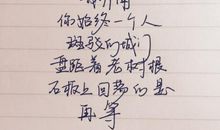 你始终一个人
斑驳的城门
盘踞着老树根
石板上回荡的是
再等